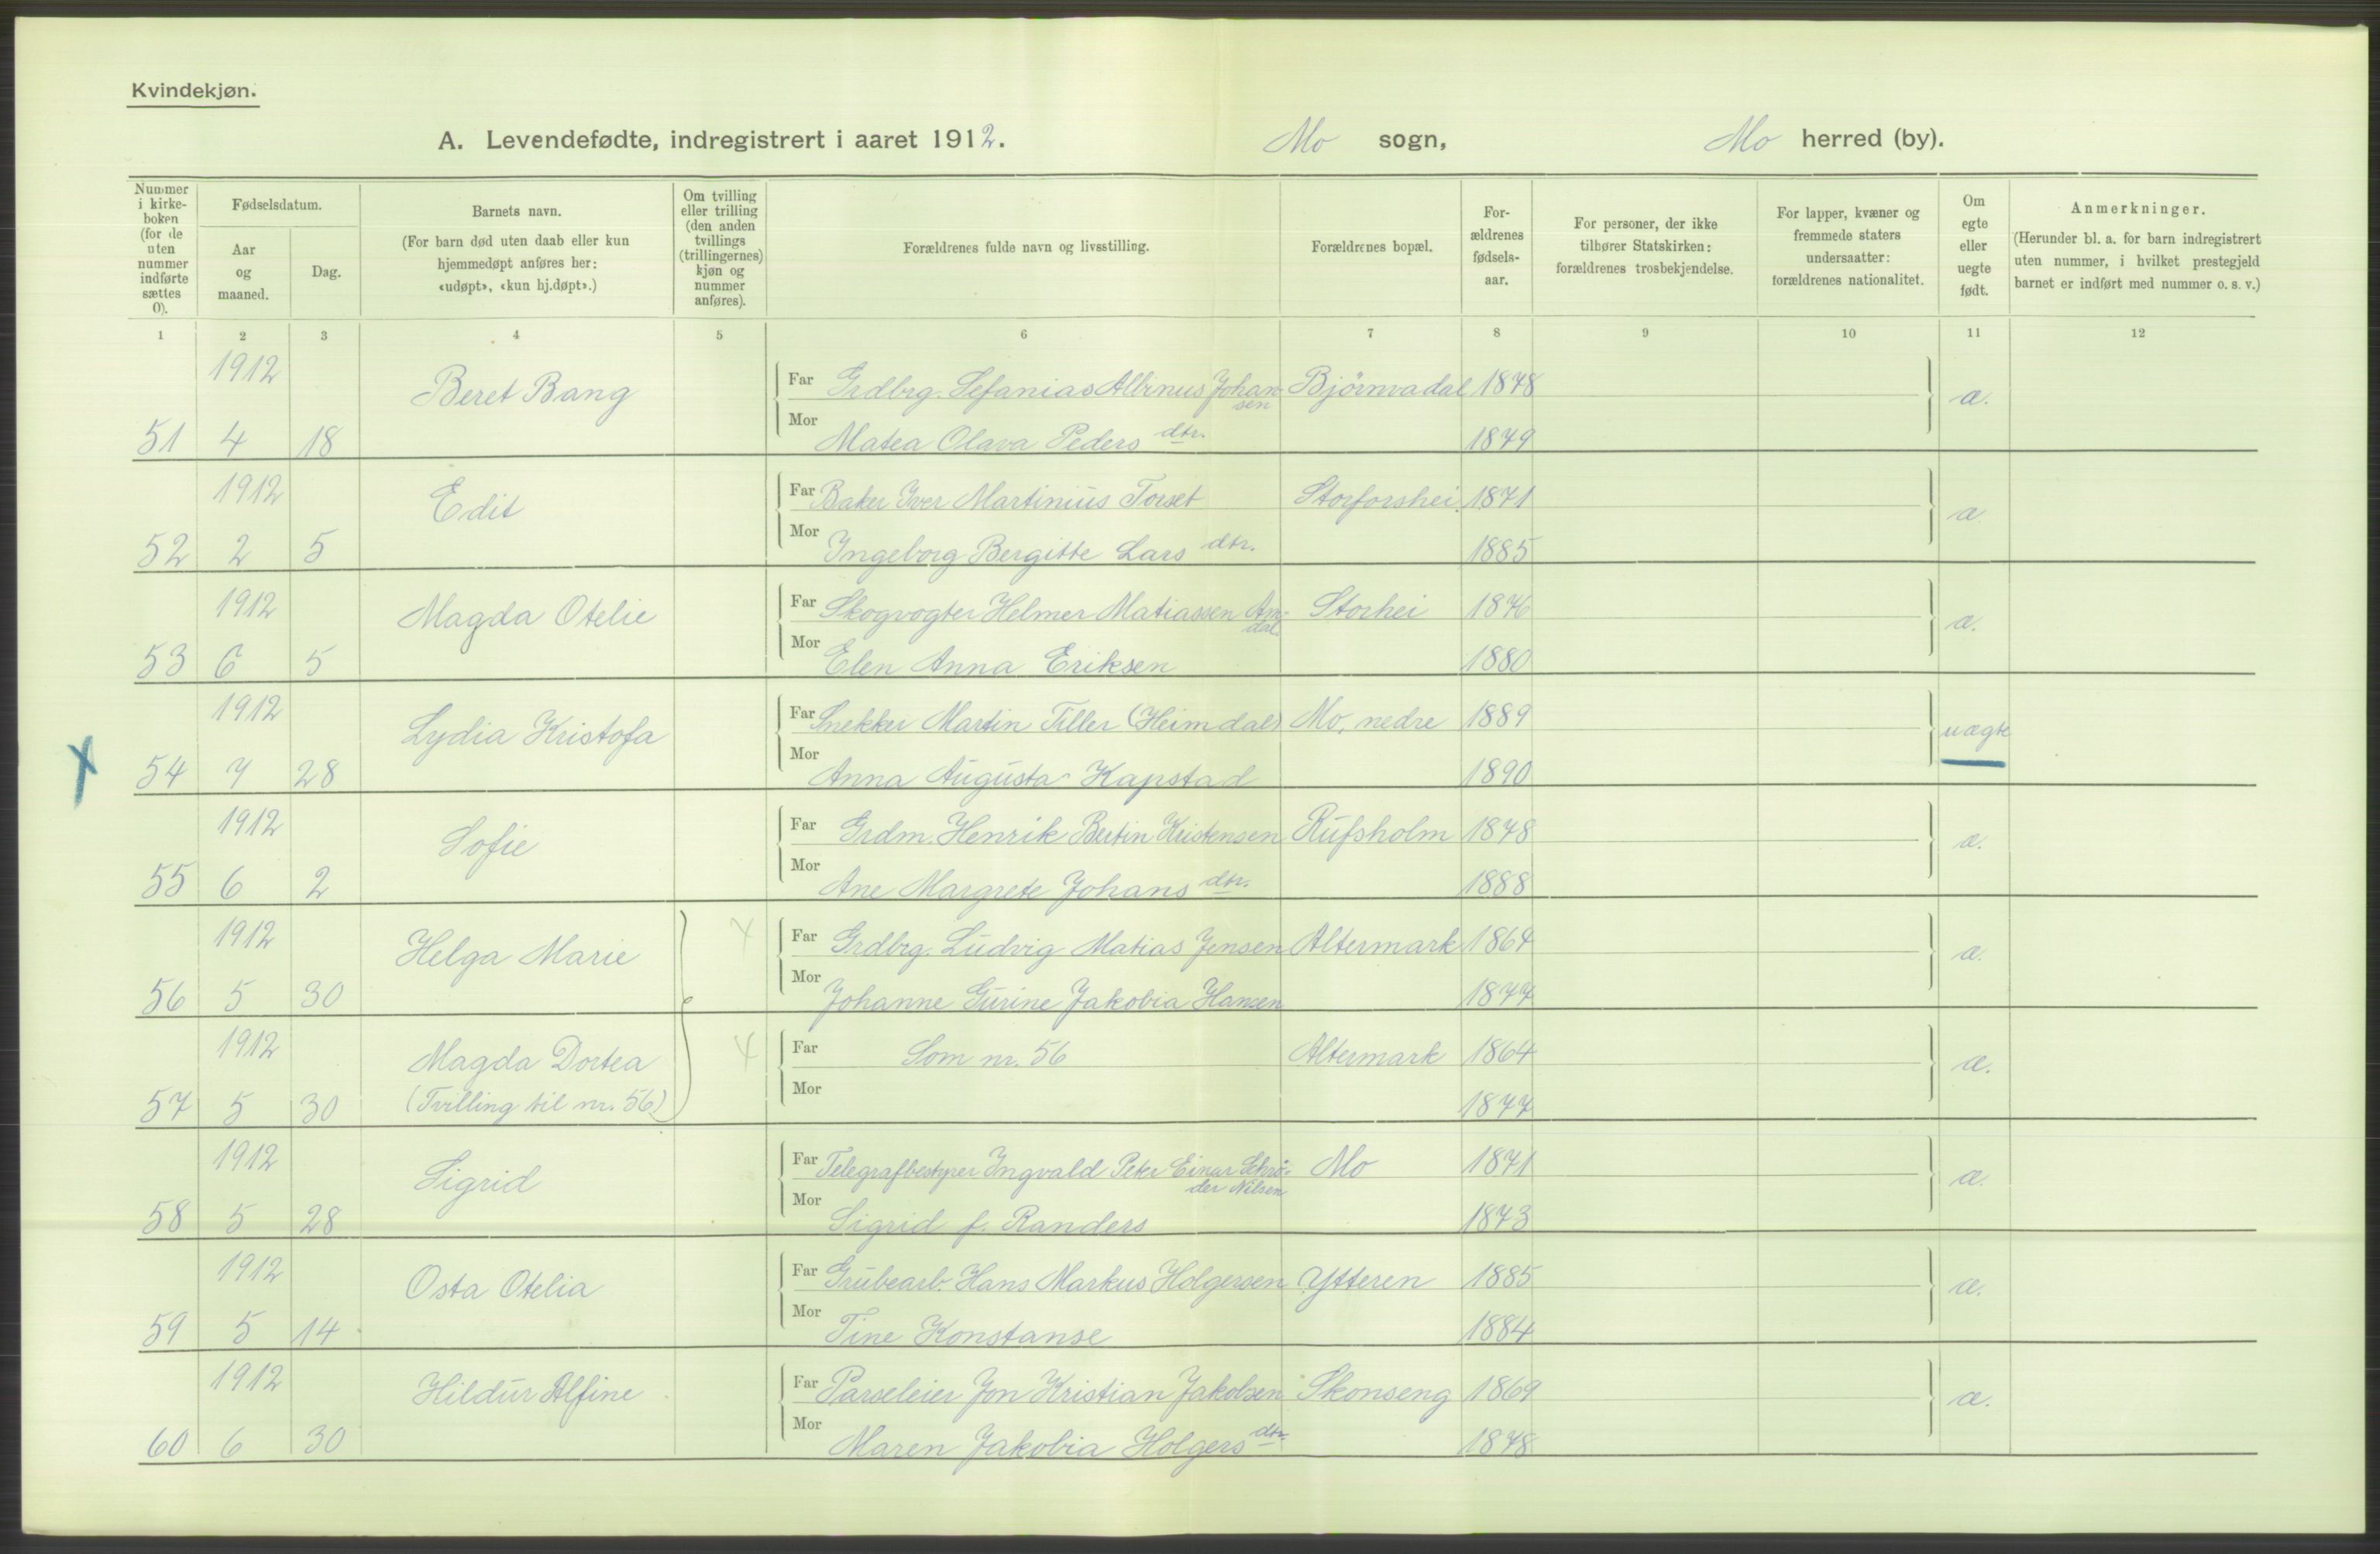 Kvindekjøn.
A. Levendefødte, indregistrert i aaret 1912. Mo sogn, Mo herred (by).
Nummer i kirke-boken (for de uten nummer indførte sættes 0).
Fødselsdatum.
Aar og maaned.
Dag.
Barnets navn.
(For barn død uten daab eller kun hjemmedøpt anføres her: «udøpt», «kun hj.døpt».)
Om tvilling eller trilling (den anden tvillings (trillingernes) kjøn og nummer anføres).
Forældrenes fulde navn og livsstilling.
Forældrenes bopæl.
For-ældrenes fødsels-aar.
For personer, der ikke tilhører Statskirken: forældrenes trosbekjendelse.
For lapper, kvæner og fremmede staters undersaatter: forældrenes nationalitet.
Om egte eller uegte født.
Anmerkninger.
(Herunder bl. a. for barn indregistrert uten nummer, i hvilket prestegjeld barnet er indført med nummer o. s. v.)
1 2 3 4 5 6 7 8 9 10 11 12
1912 Beret Bang Far Grdbrg. Sefanias Albinus Johansen Bjørnvadal 1878 æ.
51 4 18 Mor Matea Olava Peders dtr. 1879
1912 Edit Far Baker Iver Martinius Torset Storforshei 1871 æ
52 2 5 Mor Ingeborg Bergitte Lars dtr. 1885
1912 Magda Otelie Far Skogvogter Helmer Matiassen Amdal. Storhei 1876 æ.
53 6 5 Mor Elen Anna Eriksen 1880
1912 Lydia Kristofa Far Snekker Martin Tiller (Heimdal) Mo, nedre 1889 uægte
54 7 28 Mor Anna Augusta Kapstad 1890
1912 Sofie Far Grdm. Henrik Bertin Kristensen Rufsholm 1878 æ.
55 6 2 Mor Ane Margrete Johans dtr. 1888
1912 Helga Marie Far Grdbrg. Ludvig Matias Jensen Altermark 1864 æ.
56 5 30 Mor Johanne Gurine Jakobia Hansen 1877
1912 Magda Dortea Far Som nr. 56 Altermark 1864 æ.
57 5 30 (Tvilling til nr. 56) Mor 1877
1912 Sigrid Far Telegrafbestyrer Ingvald Peter Einar Schrøder Nilsen Mo 1871 æ.
58 5 28 Mor Sigrid f. Randers 1873
1912 Osta Otelia Far Grubearb. Hans Markus Holgersen Ytteren 1885 æ.
59 5 14 Mor Tine Konstanse 1884
1912 Hildur Alfine Far Parseleier Jon Kristian Jakobsen Skonseng 1869 æ.
60 6 30 Mor Maren Jakobia Holgers dtr. 1878